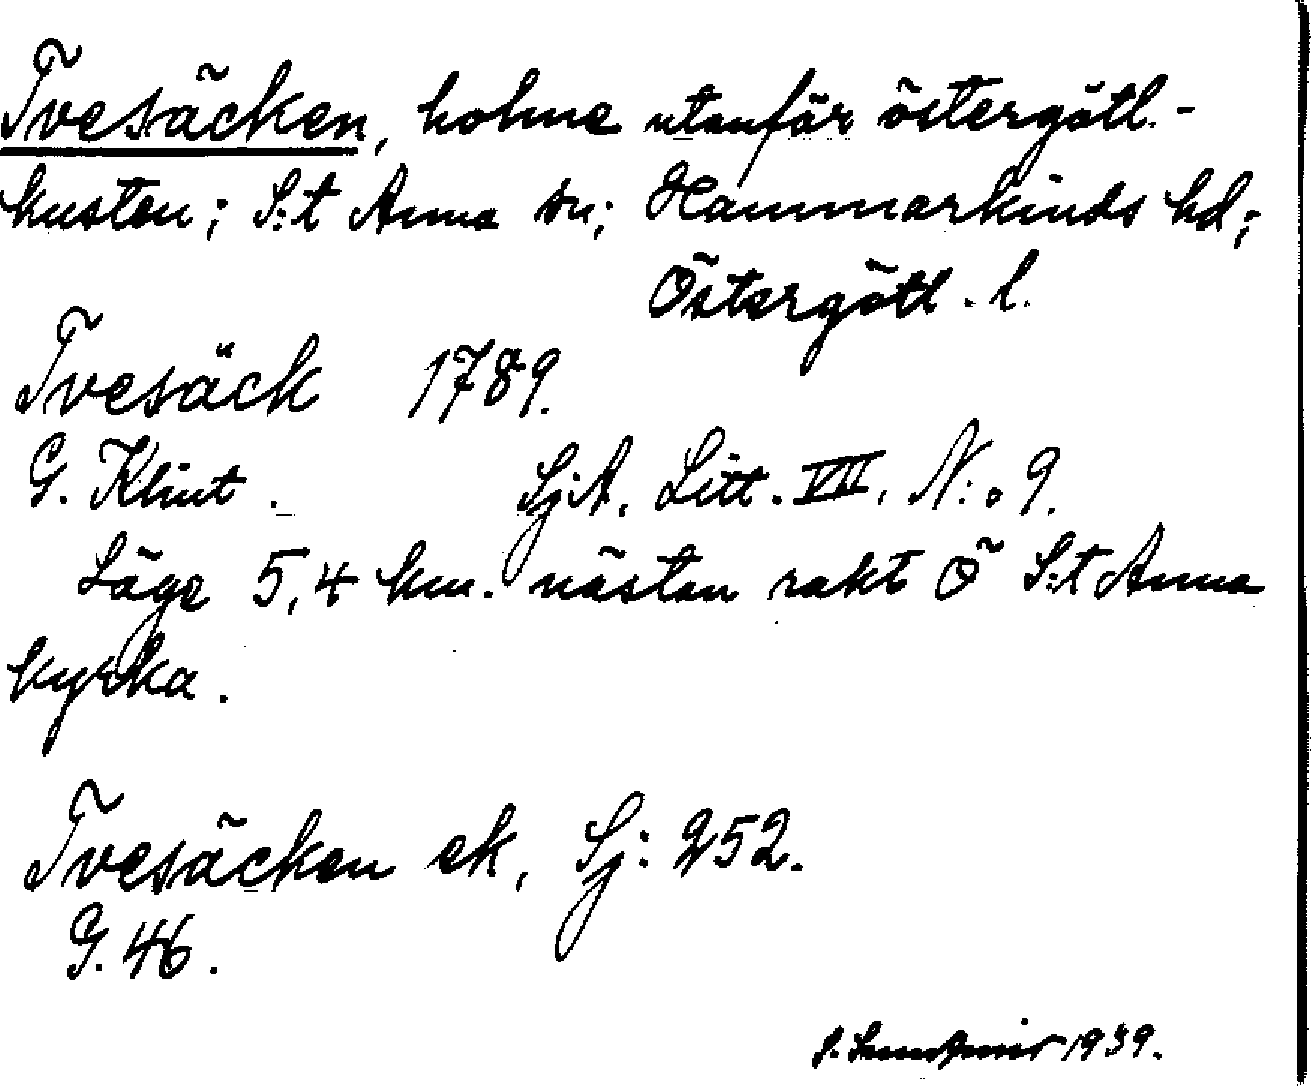 Tvesäcken, holme utanför östergötl.-
kusten; S:t Anna sn; Hammarkinds hd;
Östergötl. l.
Tvesäck 1789.
G. Klint. SjA. Litt. VII. N:o 9.
Läge 5,4 km. nästan rakt Ö S:t Anna
kyrka.
Tvesäcken ek, Sj: 252.
G. 46.
1939.